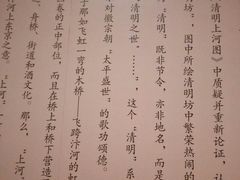 清明上河图》中质疑并重新论证，认
坊"，图中所绘清明坊中繁荣热闹的
"清明"既非节令，亦非地名，而是
清明之世"，……，这个"清明"系
对徽宗朝"太平盛世"的歌功颂德。
于那如飞虹一弯的木桥——飞跨汴河的虹
卷的正中部位，而且在桥上和桥下营造
舟桥、街道和酒文化。那么，"上河
河上东京之意。"上河"一